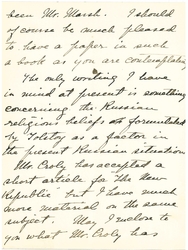 been Mr. Marsh. I should
of course be much pleased
to have a paper in such
a book as you are contemplating.
The only writing I have
in mind at present is something
concerning the Russian
religious beliefs as formulated
by Tolstoy as a factor in
the present Russian situation.
Mr. Croly has accepted a
short article for The New
Republic but I have much
more material on the same
subject. May I inclose to
you what Mr. Croly has